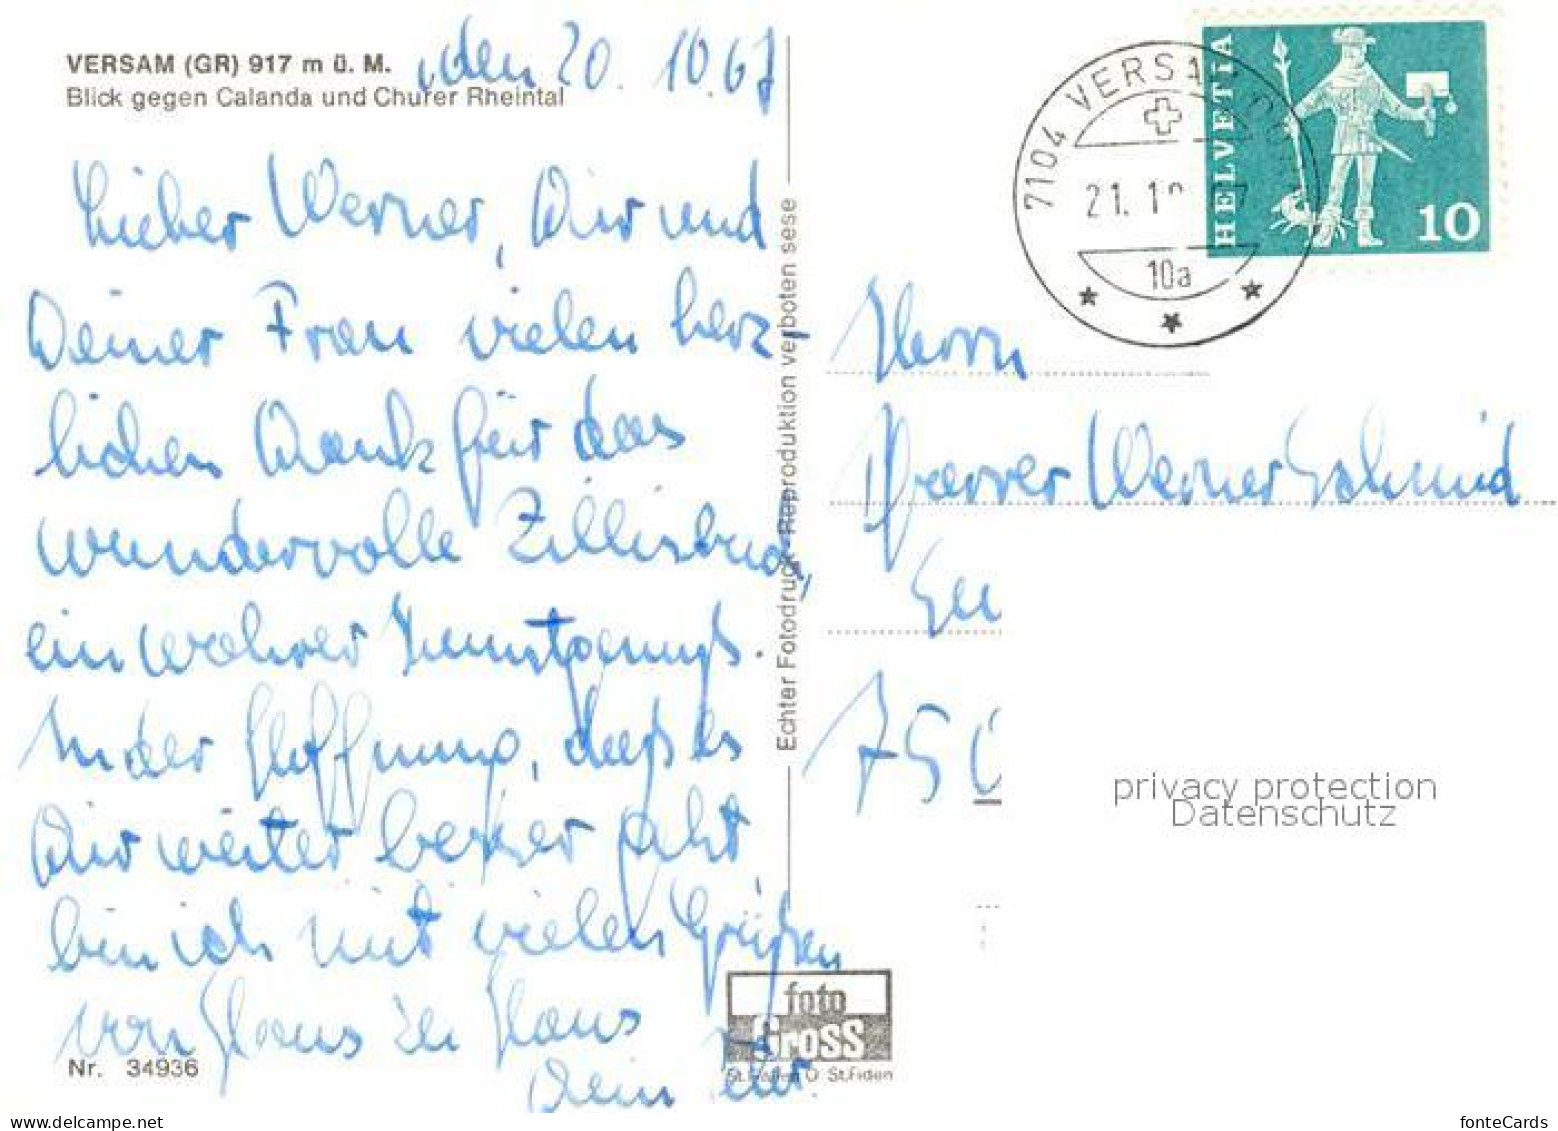 VERSAM (GR) 917 m ü. M.
Blick gegen Calanda und Churer Rheintal
den 20. 10. 67
Lieber Werner, Dir und
Deiner Frau vielen herz-
lichen Dank für das
wundervolle Zillisbuch,
ein wahrer Kunstgenuß.
In der Hoffnung, daß es
Dir weiter besser geht
bin ich mit vielen Grüßen
von Haus zu Haus
Dein
Nr. 34936
Echter Fotodruck - Reproduktion verboten sese
foto
Gross
St. Gallen O St.Fiden
7104 VERSA
21. 1 7
10a
HELVETIA
10
Herrn
Pfarrer Werner Schmid
750
privacy protection
Datenschutz
www.delcampe.net
fonteCards